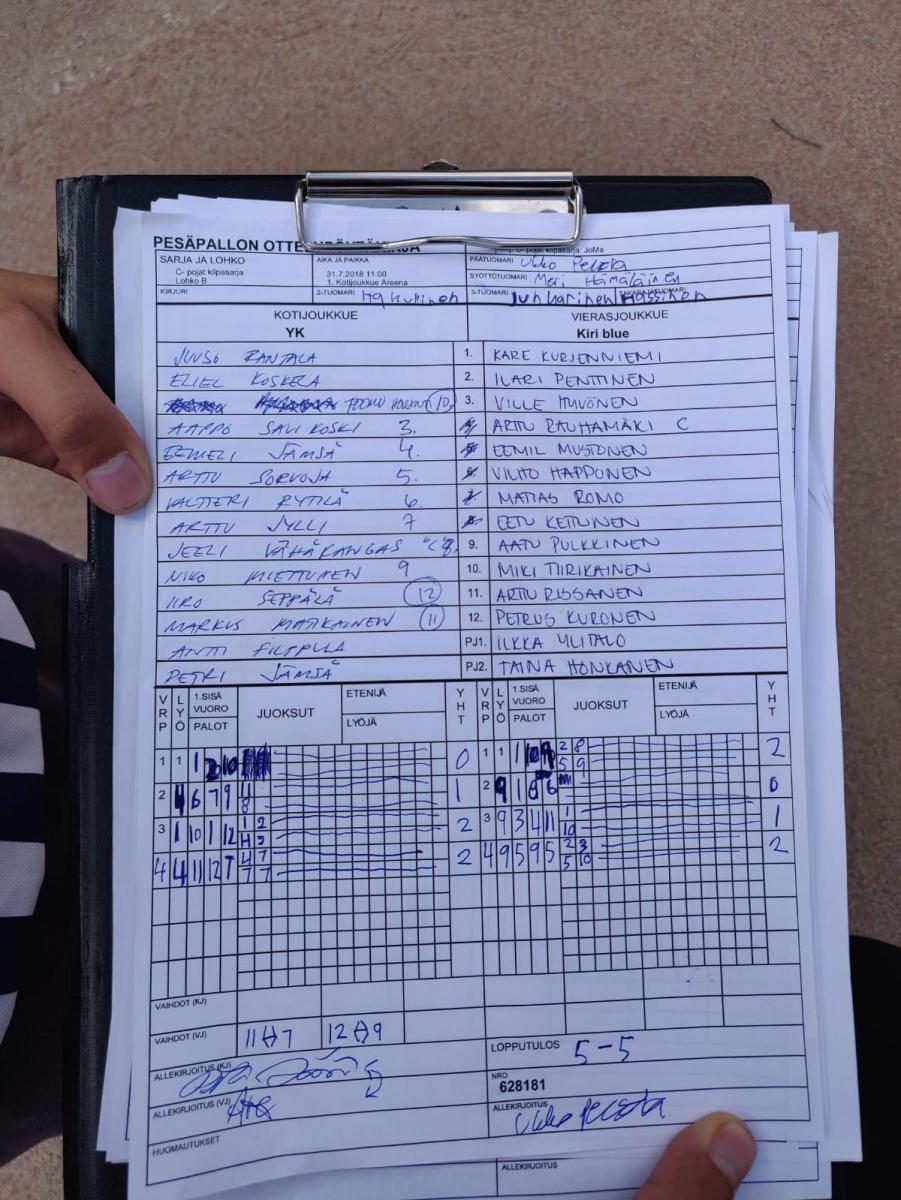 PESÄPALLON OTTE
C- pojat kilpasarja: JoMa
SARJA JA LOHKO
C- pojat kilpasarja
Lohko B
AIKA JA PAIKKA
31.7.2018 11:00
1. Kotijoukkue Areena
PÄÄTUOMARI
SYÖTTÖTUOMARI Meri Hämäläinen
KIRJURI
2-TUOMARI
3-TUOMARI Junkarinen
KOTIJOUKKUE
YK
VIERASJOUKKUE
Kiri blue
JUUSO RANTALA 1. KARE KURJENNIEMI
ELIEL KOSKELA 2. ILARI PENTTINEN
10. 3. VILLE HUVÖNEN
AAPPO SAVIKOSKI 3. ARTTU RAUHAMÄKI C
EEMELI JÄMSÄ 4. EEMIL MUSTONEN
ARTTU SORVOJA 5. VILHO HAPPONEN
VALTTERI RYTILÄ 6 MATIAS ROMO
ARTTU JYLLI 7 EETU KETTUNEN
JEELI VÄHÄKANGAS "C" 8. 9. AATU PULKKINEN
NIKO MIETTUNEN 9 10. MIKI TIIRIKAINEN
IIRO SEPPÄLÄ 12 11. ARTTU RISSANEN
MARKUS MATIKAINEN 11 12. PETRUS KURONEN
ANTTI FILPPULA PJ1. ILKKA YLITALO
PETRI JÄMSÄ PJ2. TAINA HONKANEN
VRP LYÖ 1.SISÄ VUORO PALOT JUOKSUT ETENIJÄ LYÖJÄ YHT VRP LYÖ 1.SISÄ VUORO PALOT JUOKSUT ETENIJÄ LYÖJÄ YHT
1 1 1 0 1 1 2 8 2
5 9
2 6 7 9 4 1 2 0
8
3 1 10 1 12 1 2 2 3 9 3 4 11 1 1
4 3 10
4 4 11 12 7 4 7 2 4 9 5 9 5 2 3 2
7 7 5 10
VAIHDOT (KJ)
VAIHDOT (VJ) 11↔7 12↔9
ALLEKIRJOITUS (KJ)
LOPPUTULOS 5-5
NRO
628181
ALLEKIRJOITUS (VJ)
ALLEKIRJOITUS
HUOMAUTUKSET
ALLEKIRJOITUS